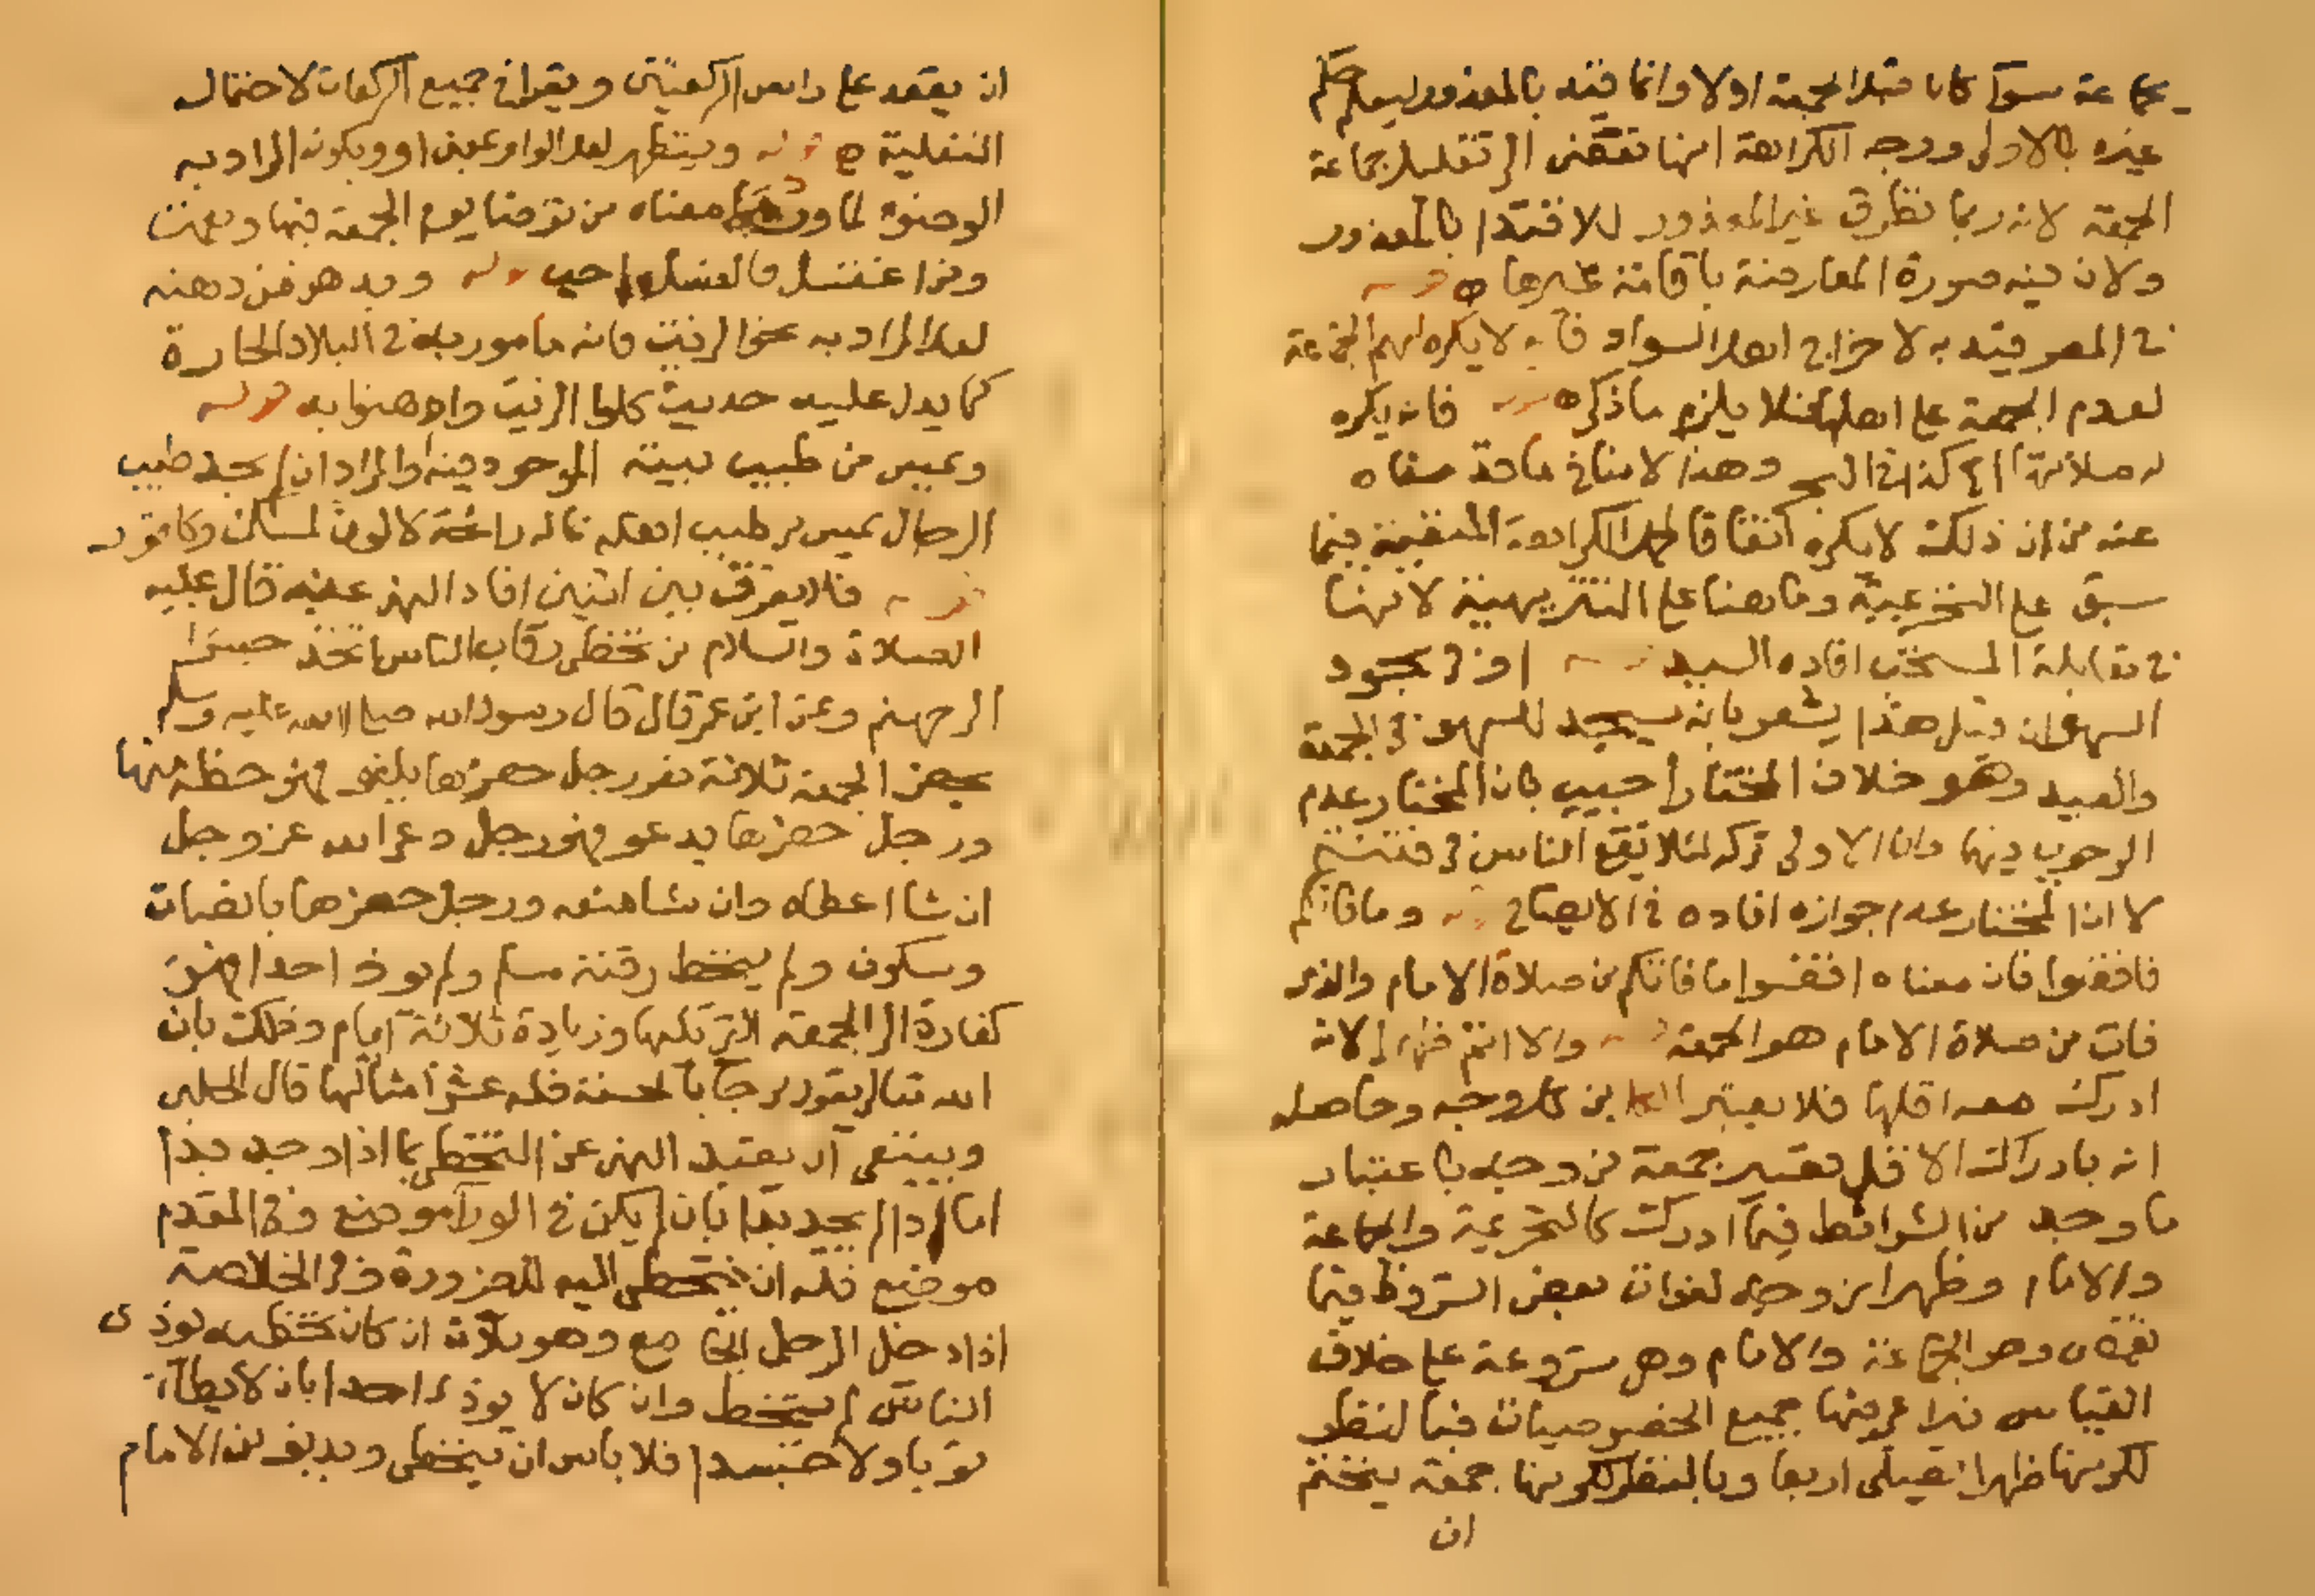 بجماعة سوآ كان قبل الجمعة اولا وانما قيد بالمعذور ليعلم حكم
غيره بالاولى ووجه الكراهة انها تفضى الى تقليل جماعة
الجمعة لانه ربما تطرق غير المعذور للاقتدا بالمعذور
ولان فيه صورة المعارضة باقامة غيرها ه قوله
فى المصر قيد به لاخراج اهل السواد فانه لا يكره لهم الجماعة
لعدم الجمعة على اهلها فلا يلزم ما ذكره قوله فانه يكره
له صلاتها الخ كذا فى البحر وهذا لا ينافى ما قدمناه
عنه من ان ذلك لا يكره اتفاقا لحمل الكراهة المنفية فيما
سبق على التحريمية وما هنا على التنزيهية لانهنا
فى مقابلة المستحب افاده السيد قوله او فى سجود
السهو ان قيل هذا يشعر بانه يسجد للسهو فى الجمعة
والعيد وهو خلاف المختار اجيب بان المختار عدم
الوجوب فيهما وان الاولى تركه لئلا تقع الناس فى فتنة
لا ان المختار عدم جوازه افاده فى الايضاح قوله وما فاتكم
فاقضوا فان معناه اقضوا ما فاتكم من صلاة الامام والذى
فات من صلاة الامام هو الجمعة قوله والا اتم ظهرا لانه
ادرك معه اقلها فلا يعتبر من كل وجه وحاصله
انه بادراك الاقل تعتبر جمعة من وجه باعتبار
ما وجد من الشرائط فيما ادرك كالتحريمة والجماعة
والامام وظهرا من وجه لفوات بعض الشروط فيما
نقص وهو الجماعة والامام وهى مشروعة على خلاف
القياس فيراعى فيها جميع الخصوصيات فبالنظر
لكونها ظهرا تصلى اربعا وبالنظر لكونها جمعة يتحتم
ان
ان يقعد على راس الركعتين ويقرا فى جميع الركعات لاحتمال
النفلية ه قوله ويتطهر لعل الواو بمعنى او ويكون المراد به
الوضوء لما ورد ما معناه من توضا يوم الجمعة فبها ونعمت
ومن اغتسل فالغسل احب قوله ويدهن من دهنه
لعل المراد به نحو الزيت فانه مامور به فى البلاد الحارة
كما يدل عليه حديث كلوا الزيت وادهنوا به قوله
ويمس من طيب بيته الموجود فيه والمراد ان لم يجد طيب
الرجال يمس من طيب اهله ماله رائحة لا لون لمسك وكافور
قوله فلا يفرق بين اثنين افاد النهى عنه قال عليه
الصلاة والسلام من تخطى رقاب الناس اتخذ جسرا
الى جهنم وعن ابن عمر قال قال رسول الله صلى الله عليه وسلم
يحضر الجمعة ثلاثة نفر رجل حضرها يلغو فهو حظه منها
ورجل حضرها يدعو فهو رجل دعى الله عز وجل
ان شا اعطاه وان شا منعه ورجل حضرها بانصات
وسكوت ولم يتخط رقبة مسلم ولم يوذ احدا فهى
كفارة الى الجمعة التى تليها وزيادة ثلاثة ايام وذلك بان
الله تعالى يقول من جآ بالحسنة فله عشر امثالها قال الحلبى
وينبغى ان يقيد النهى عن التخطى بما اذا وجد بدا
اما اذا لم يجد بدا بان لم يكن فى الورآ موضع وفى المقدم
موضع فله ان يتخطى اليه للضرورة وفى الخلاصة
اذا دخل الرجل الجامع وهو ملآن ان كان تخطيه يوذى
الناس لم يتخط وان كان لا يوذى احدا بان لا يطا
ثوبا ولا جسدا فلا باس ان يتخطى ويدنو من الامام